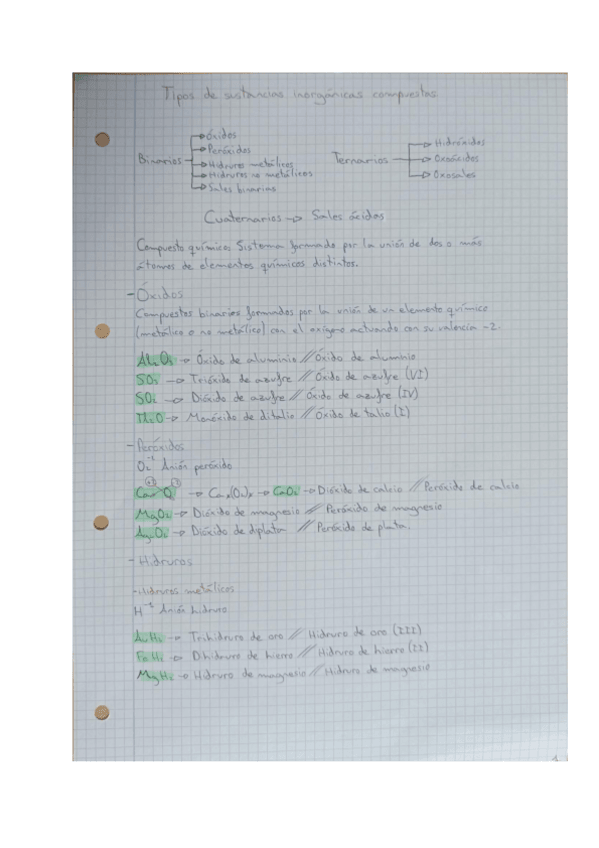 Tipos de sustancias inorgánicas compuestas.
Binarios
Óxidos
Peróxidos
Hidruros metálicos
Hidruros no metálicos
Sales binarias
Ternarios
Hidróxidos
Oxoácidos
Oxosales
Cuaternarios → Sales ácidas
Compuesto químico: Sistema formado por la unión de dos o más
átomos de elementos químicos distintos.
- Óxidos
Compuestos binarios formados por la unión de un elemento químico
(metálico o no metálico) con el oxígeno actuando con su valencia -2.
Al2O3 → Óxido de aluminio // Óxido de aluminio
SO3 → Trióxido de azufre // Óxido de azufre (VI)
SO2 → Dióxido de azufre // Óxido de azufre (IV)
Tl2O → Monóxido de ditalio // Óxido de talio (I)
- Peróxidos
Anión peróxido
→ CaO2 → Dióxido de calcio // Peróxido de calcio
MgO2 → Dióxido de magnesio // Peróxido de magnesio
Ag2O2 → Dióxido de diplata // Peróxido de plata.
- Hidruros
- Hidruros metálicos
Anión hidruro
→ Trihidruro de oro // Hidruro de oro (III)
FeH2 → Dihidruro de hierro // Hidruro de hierro (II)
MgH2 → Hidruro de magnesio // Hidruro de magnesio